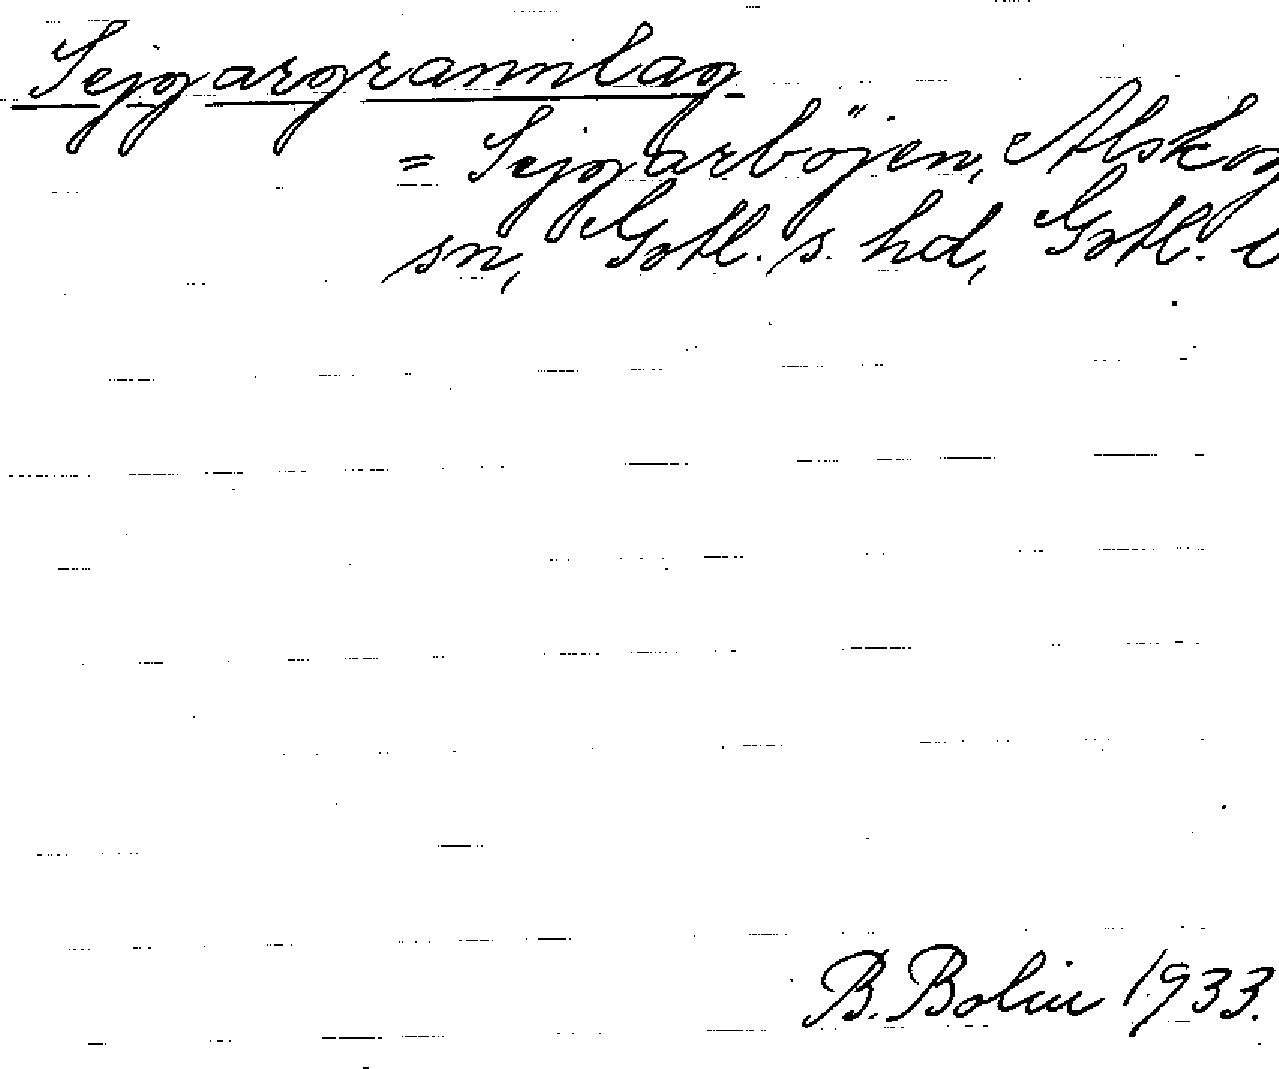 Sejgargrannlag
= Sejgarböjen, Alskog
sn, Gotl. s. hd, Gotl. l
B. Bolin 1933.